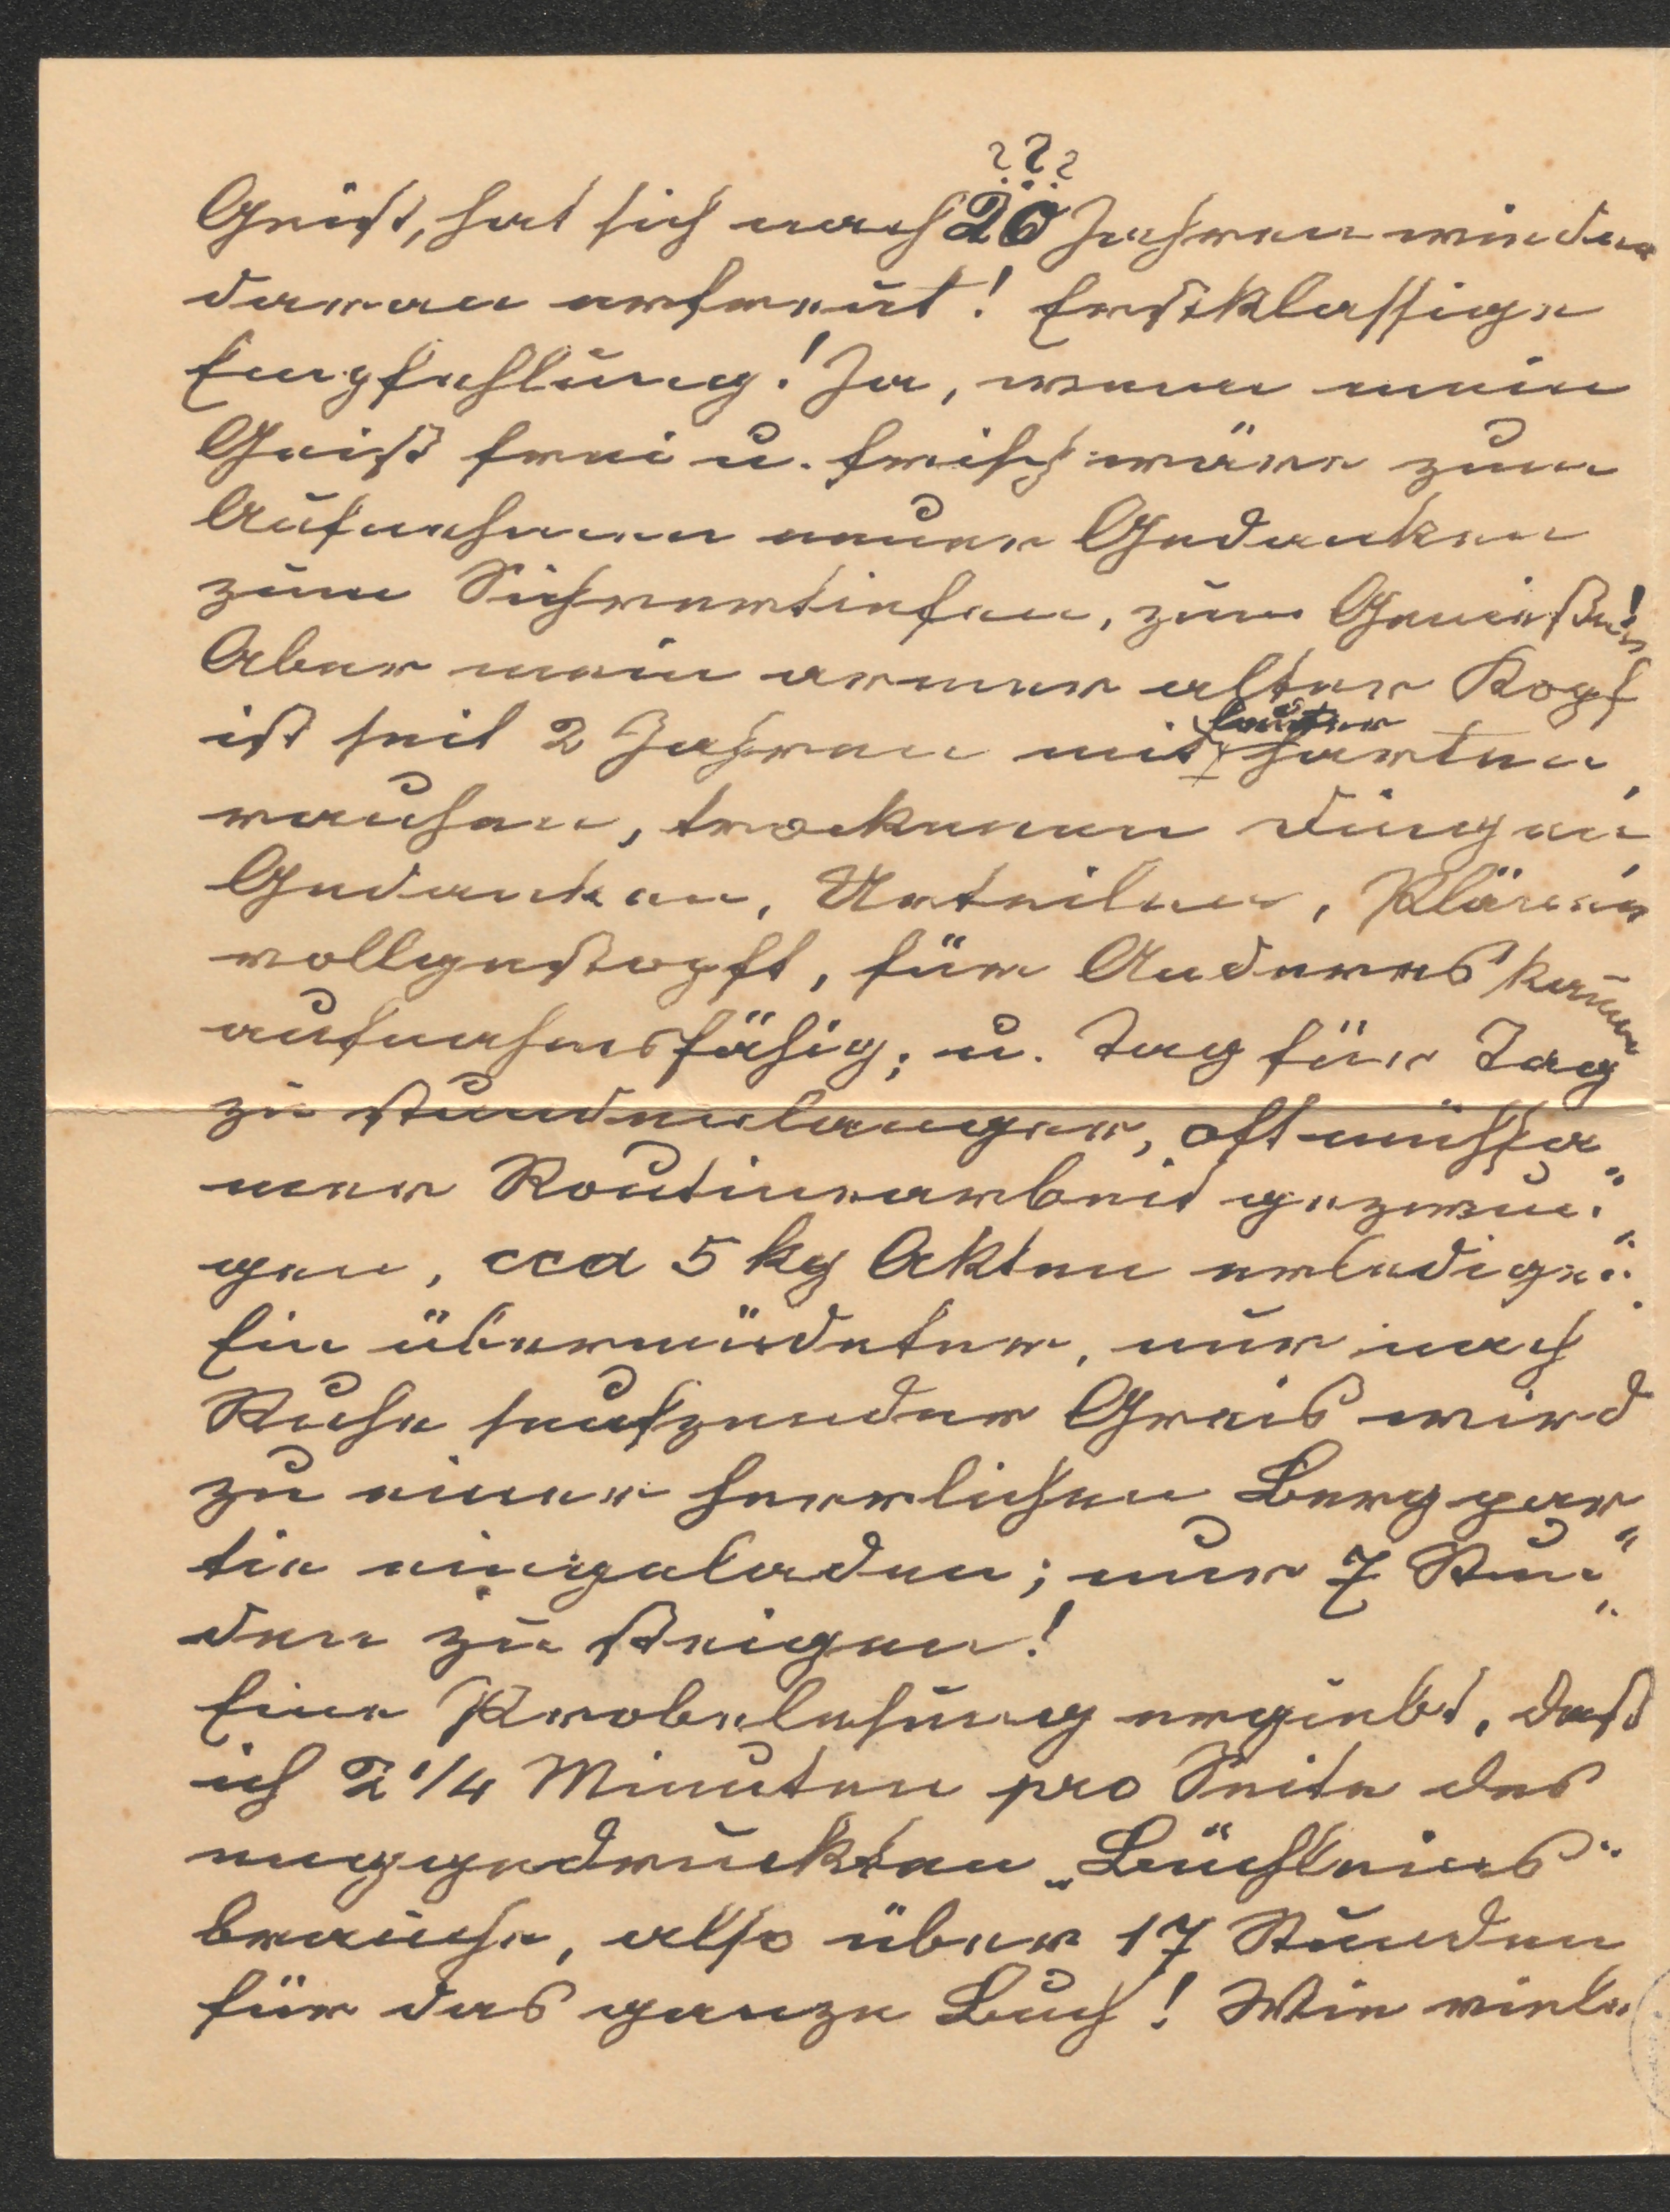 ???
Geist, hat sich nach 20 Jahren wieder
daran erfreut! Erstklassige
Empfehlung! Ja, wenn mein
Geist frei u. frisch wäre zum
Aufnehmen neuer Gedanken
zum Sichvertiefen, zum Genießen!
Aber mein armer alter Kopf
ist seit 2 Jahren mit lauter harten,
rauhen, trockenen Dingen,
Gedanken, Urteilen, Plänen
vollgestopft, für Anderes kaum
aufnahmsfähig; u. Tag für Tag
zu stundenlanger, oft mühsa
mer Routinearbeit gezwun-
gen, cca 5 kg Akten erledigen.
Ein übermüdeter, nur nach
Ruhe seufzender Greis wird
zu einer herrlichen Bergpar
tie eingeladen; nur 7 Stun-
den zu steigen!
Eine Probelesung ergiebt, daß
ich 2 1/4 Minuten pro Seite des
enggedruckten „Büchleins“
brauche, also über 17 Stunden
für das ganze Buch! Wie viele